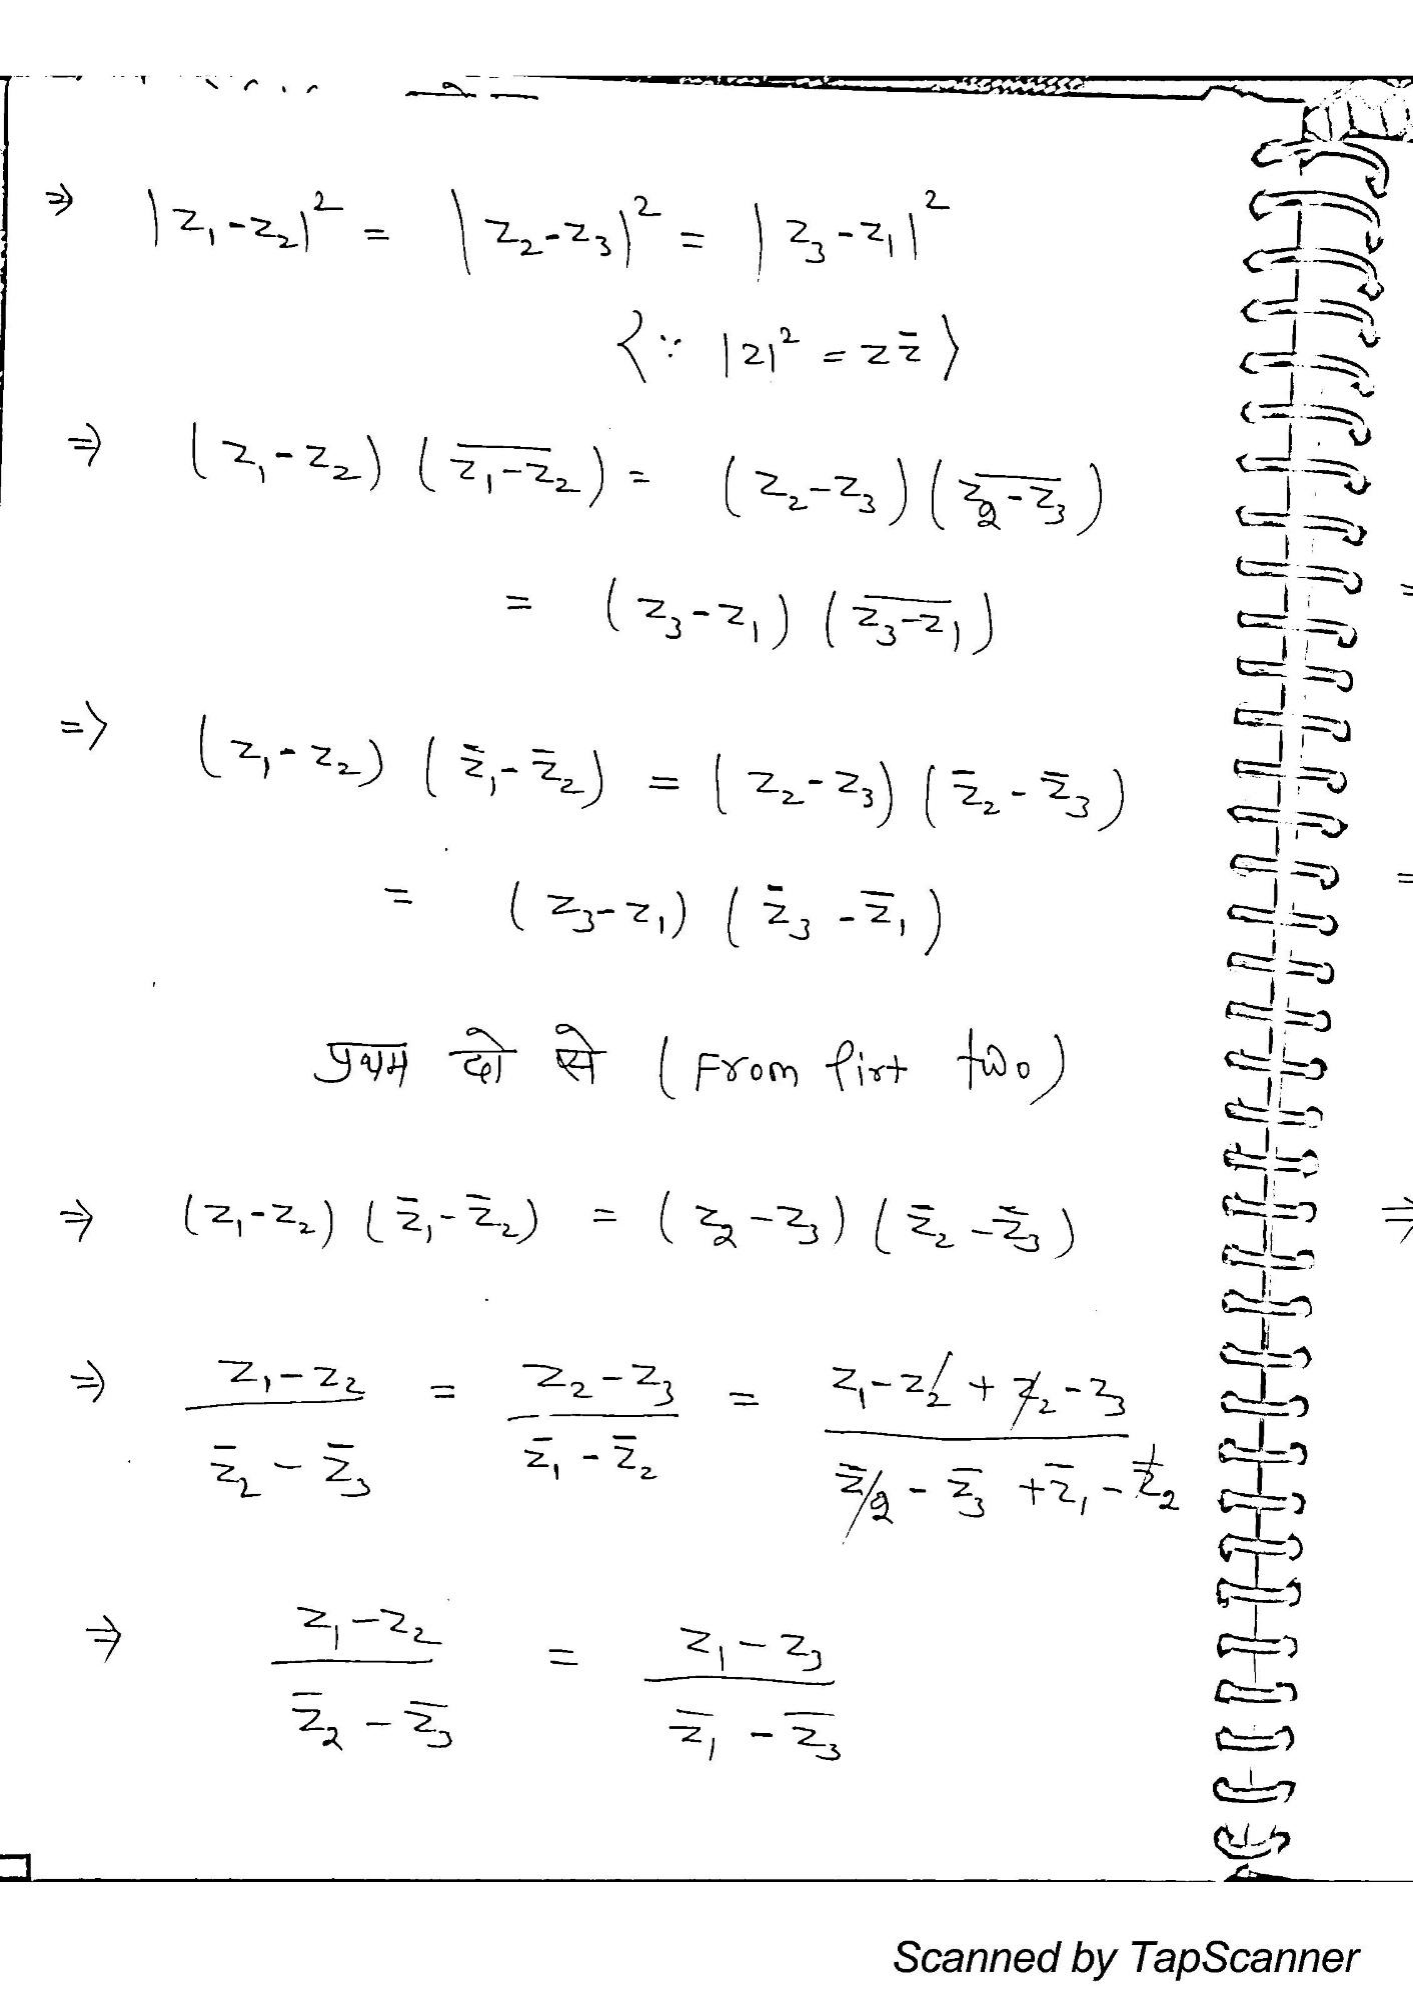 ⇒ |z₁-z₂|² = |z₂-z₃|² = |z₃-z₁|²
{∵ |z|² = z z̄}
⇒ (z₁-z₂) (z̅₁̅-̅z̅₂) = (z₂-z₃) (z̅₂̅-̅z̅₃)
= (z₃-z₁) (z̅₃̅-̅z̅₁)
=> (z₁-z₂) (z̄₁-z̄₂) = (z₂-z₃) (z̄₂-z̄₃)
= (z₃-z₁) (z̄₃-z̄₁)
प्रथम दो से (From firt two)
⇒ (z₁-z₂) (z̄₁-z̄₂) = (z₂-z₃) (z̄₂-z̄₃)
⇒ (z₁-z₂)/(z̄₂-z̄₃) = (z₂-z₃)/(z̄₁-z̄₂) = (z₁-z₂+z₂-z₃)/(z̄₂-z̄₃+z̄₁-z̄₂)
⇒ (z₁-z₂)/(z̄₂-z̄₃) = (z₁-z₃)/(z̄₁-z̄₃)
Scanned by TapScanner